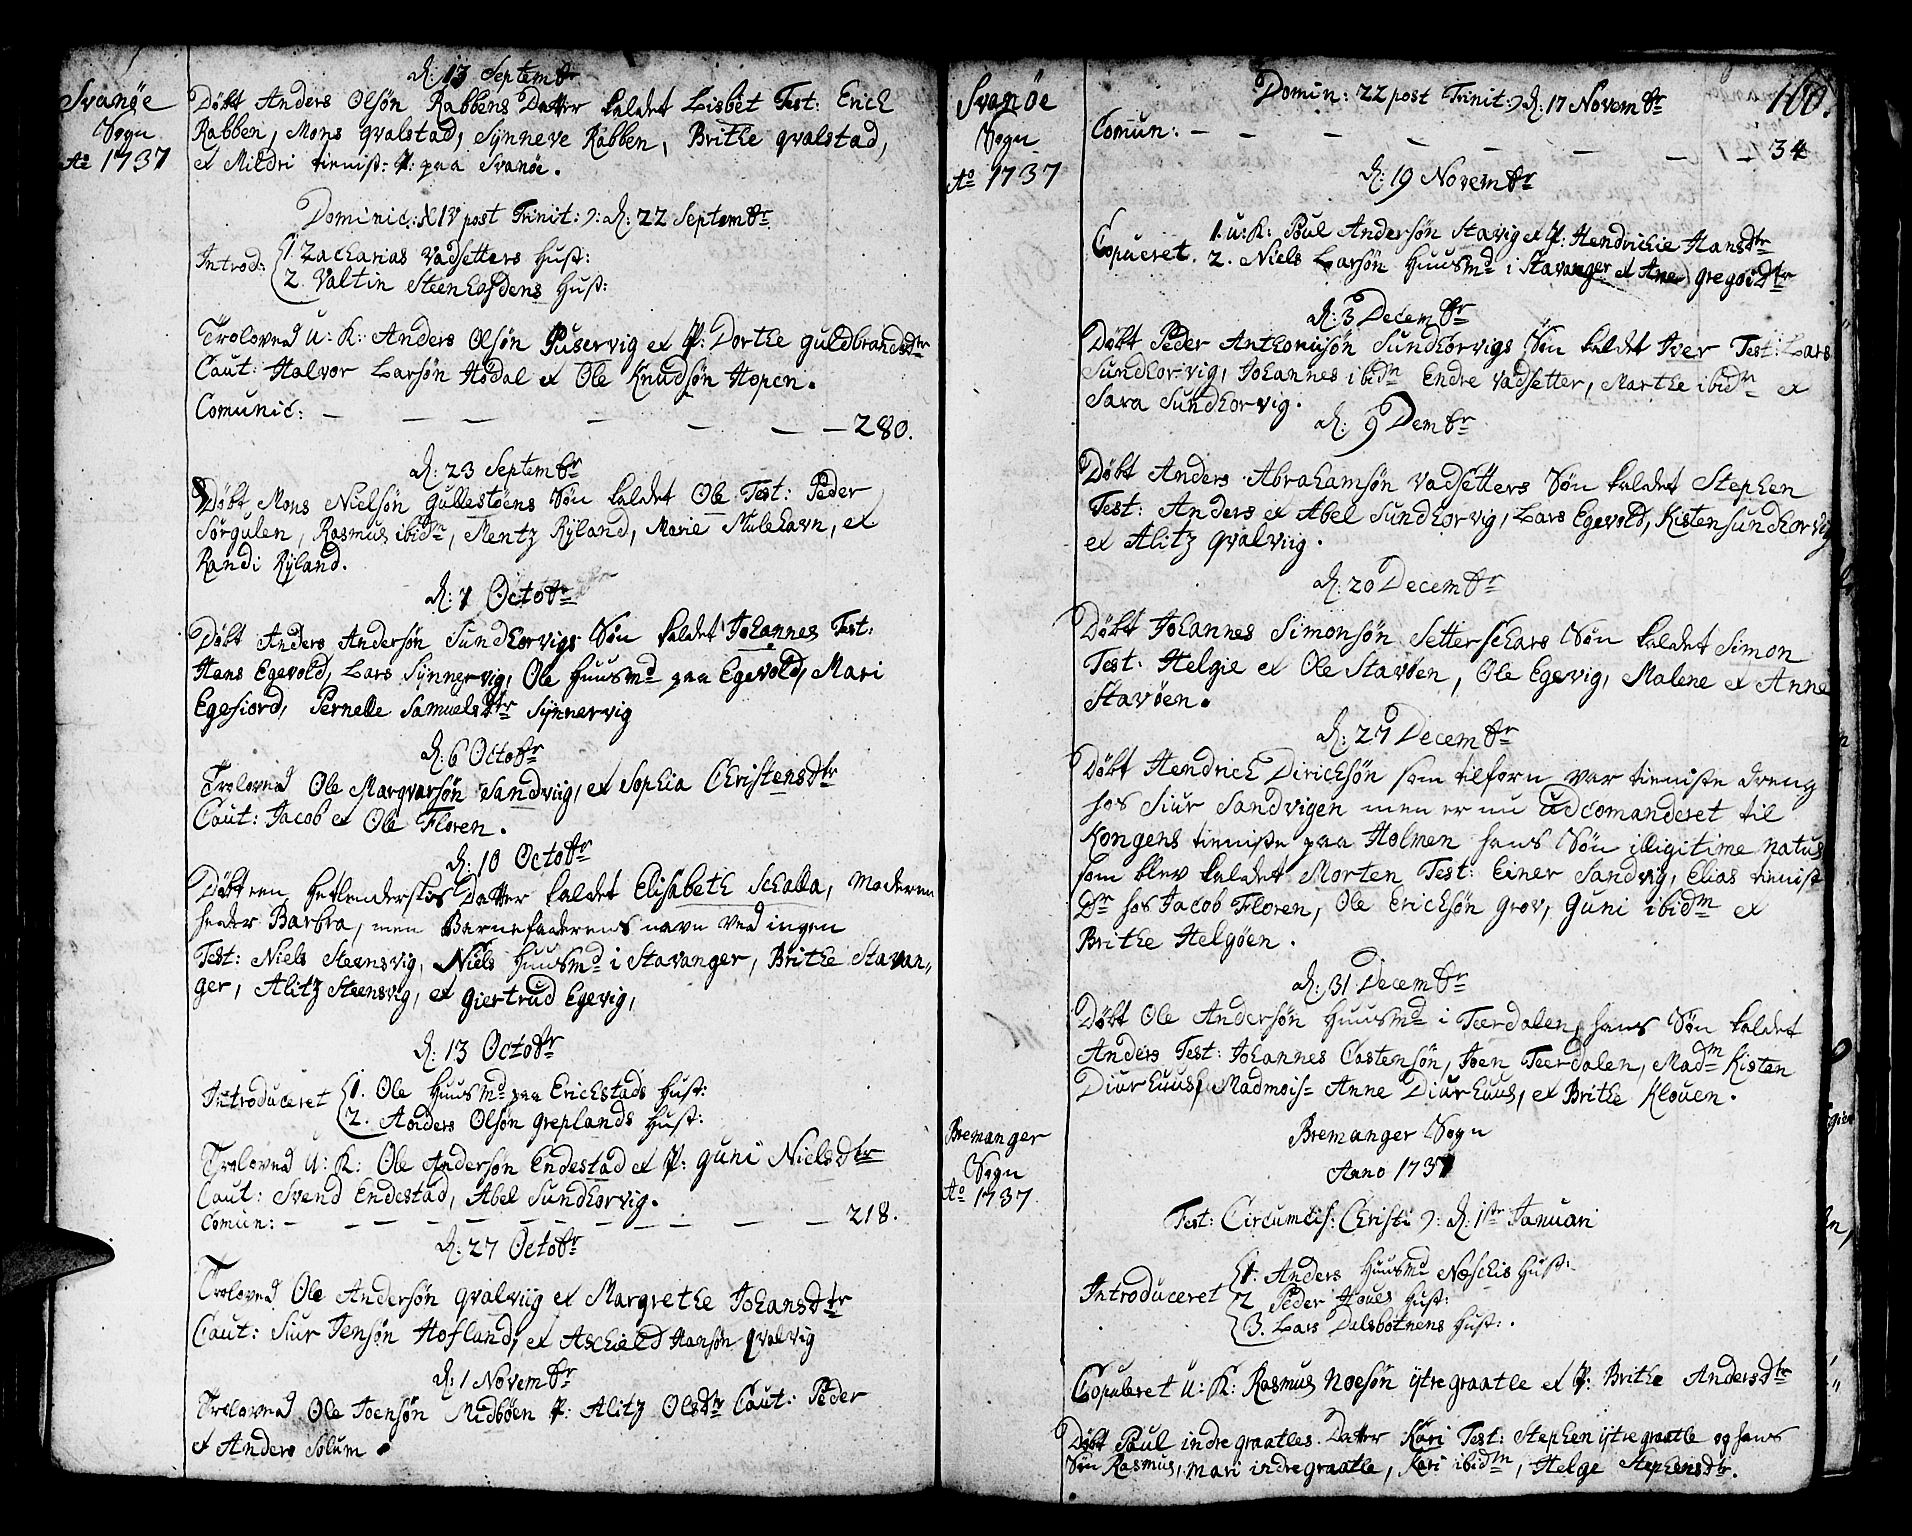 Svanöe
Sogn
Ao 1737
d: 13 Septembr
Döbt Anders Olsön Rabbens Datter kaldet Lisbet Test: Erich
Rabben, Mons qvalstad, Synneve Rabben, Brithe qvalstad,
et Mildri tienist: P: paa Svanöe.
Dominic: XIV post Trinit: ɔ: d: 22 Septembr
Introd: 1. Zacharias Vadsetters Hust:
2. Valtin Steenhofdens Hust:
Troloved U: K: Anders Olsön Puservig et P: Dorthe guldbrandsdtr
Caut: Halvor Larsön Hodal et Ole Knudsön Hopen.
Comunic: — — — — — — — 280.
d: 23 Septembr
Döbt Mons Nielsön gullestöens Sön kaldet Ole Test: Peder
Sörgulen, Rasmus ibidm, Mentz Ryland, Marie Mulehavn, et
Randi Ryland.
d: 1 Octobr
Döbt Anders Andersön Sundhorvigs Sön kaldet Johannes Test:
Hans Egevold, Lars Synnervig, Ole Huusmd paa Egevold, Mari
Egefiord, Pernelle Samuelsdtr Synnervig
d: 6 Octobr
Troloved Ole Margvarsön Sandviig, et Sophia Christensdtr
Caut: Jacob et Ole Floren.
d: 10 Octobr
Döbt een Hetlenderskes Datter kaldet Elisabeth Schalla, Moderen
heder Barbra, men Barnefaderens navn ved ingen
Test: Niels Steensvig, Niels Huusmd i Stavanger, Brithe Stavan„
ger, Alitz Steensvig, et Giertrud Egevig,
d: 13 Octobr
Introduceret 1. Ole Huusmd paa Erichstads Hust:
2. Anders Olsön greplands Hust:
Troloved U: K: Ole Andersön Endestad et P: guni Nielsdtr
Caut: Svend Endestad, Abel Sundhorvig.
Comun: — — — — — — — — — 218.
d: 27 Octobr
Troloved Ole Andersön qvalviig et Margrethe Johansdtr
Caut: Siur Jensön Hofland, et Axhield Hansön qvalvig
d: 1 Novembr
Troloved Ole Joensön Midböen P: Alitz Olsdtr Caut: Peder
et Anders Solum.
Svanöe
Sogn
Ao 1737
160.
Domin: 22 post Trinit: ɔ: d: 17 Novembr
Comun: — — — — — — — — 34
d: 19 Novembr
Copuleret. 1. u: K: Poul Andersön Stavig et P: Hendrichie Hansdtr
2. Niels Larsön Huusmd i Stavanger et Ane gregoridtr
d: 3 Decembr
Döbt Peder Anthonisön Sundhorvigs Sön kaldet Iver Test: Lars
Sundhorvig, Johannes ibidm Endre Vadsetter, Marthe ibidm et
Sara Sundhorvig.
d: 9 Dembr
Döbt Anders Abrahamsön Vadsetters Sön kaldet Stephen
Test: Anders et Abel Sundhorvig, Lars Egevold, Kisten Sundhorvig
et Alitz qvalviig.
d: 20 Decembr
Döbt Johannes Simonsön Setterschars Sön kaldet Simon
Test: Helgie et Ole Stavöen, Ole Egevig, Malene et Anne
Stavöen.
d: 27 Decembr
Döbt Hendrich Dirichsön som tilforn var tieniste dreng
hos Siur Sandvigen men er nu udcomanderet til
Kongens tieniste paa Holmen hans Sön illigitime natus
som blev kaldet Morten Test: Einer Sandvig, Elias tienist
Dr hos Jacob Floren, Ole Erichsön grov, Guni ibidm et
Brithe Helgöen.
d: 31 Decembr
Döbt Ole Andersön Huusmd i Teerdalen, hans Sön kaldet
Anders Test: Johannes Castensön, Joen Teerdalen, Madm Kisten
Diurhuus, Madmois= Anne Diurhuus, et Brithe Klouen.
Bremanger
Sogn
Ao 1737.
Bremanger Sogn
Anno 1737
Fest: Circumcis: Christi ɔ: d: 1ste Januari
Introduceret 1. Anders Huusmd Næschis Hust:
2 Peder Houes Hust:
3. Lars Dalsbotnens Hust:.
Copuleret u: K: Rasmus Noesön ytregraatle et P: Brithe Andersdtr
Döbt Paul indregraatles Datter Kari Test: Stephen ytregraatle og hans
Sön Rasmus, Mari indregraatle, Kari ibidm, Helge Stephensdtr.